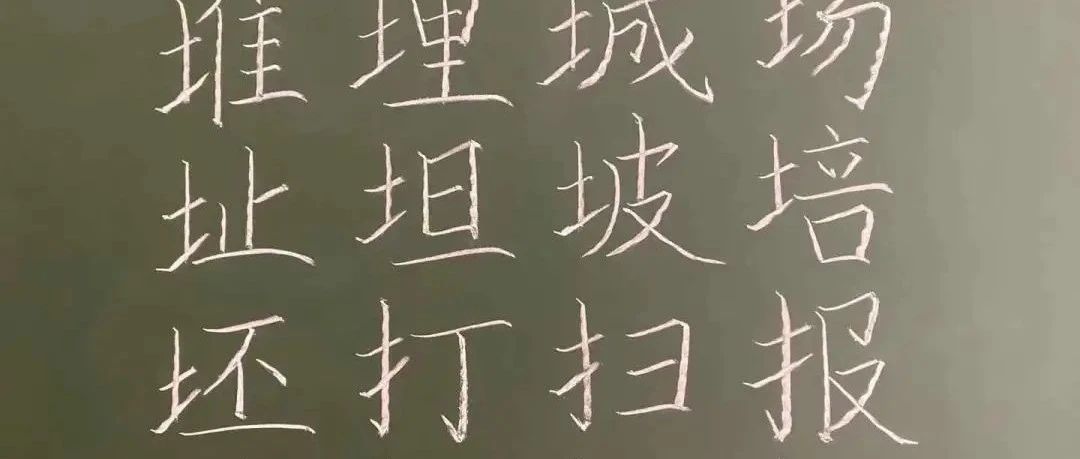 堆埋城场
址坦坡培
坯打扫报